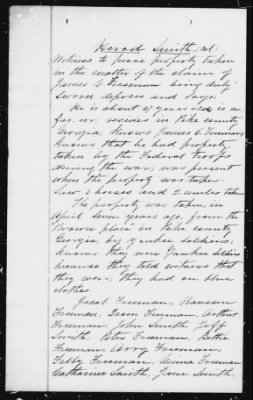 Herod Smith (col)
Witness to prove property taken
in the matter of the claim of
James C Freeman being duly
sworn deposes and says:
He is about 61 years old is a
farmer, resides in Pike county
Georgia Knows James C. Freeman,
Knows that he had property
taken by the Federal troops
during the war; was present
when the property was taken
Saw 3 horses and 2 mules taken
The property was taken, in
April seven years ago, from the
"Brown place" in Pike county
Georgia by yankee soldiers;
Knows they were Yankee soldiers
because they told witness that
they were; they had on blue
clothes
Jacob Freeman, Hanson
Freeman, Isaac Freeman, Arthur
Freeman, John Smith, Jeff
Smith, Peter Freeman, Lettie
Freeman, Amy Freeman,
Tabby Freeman, Anna Freeman
Catharine Smith, Jane Smith,